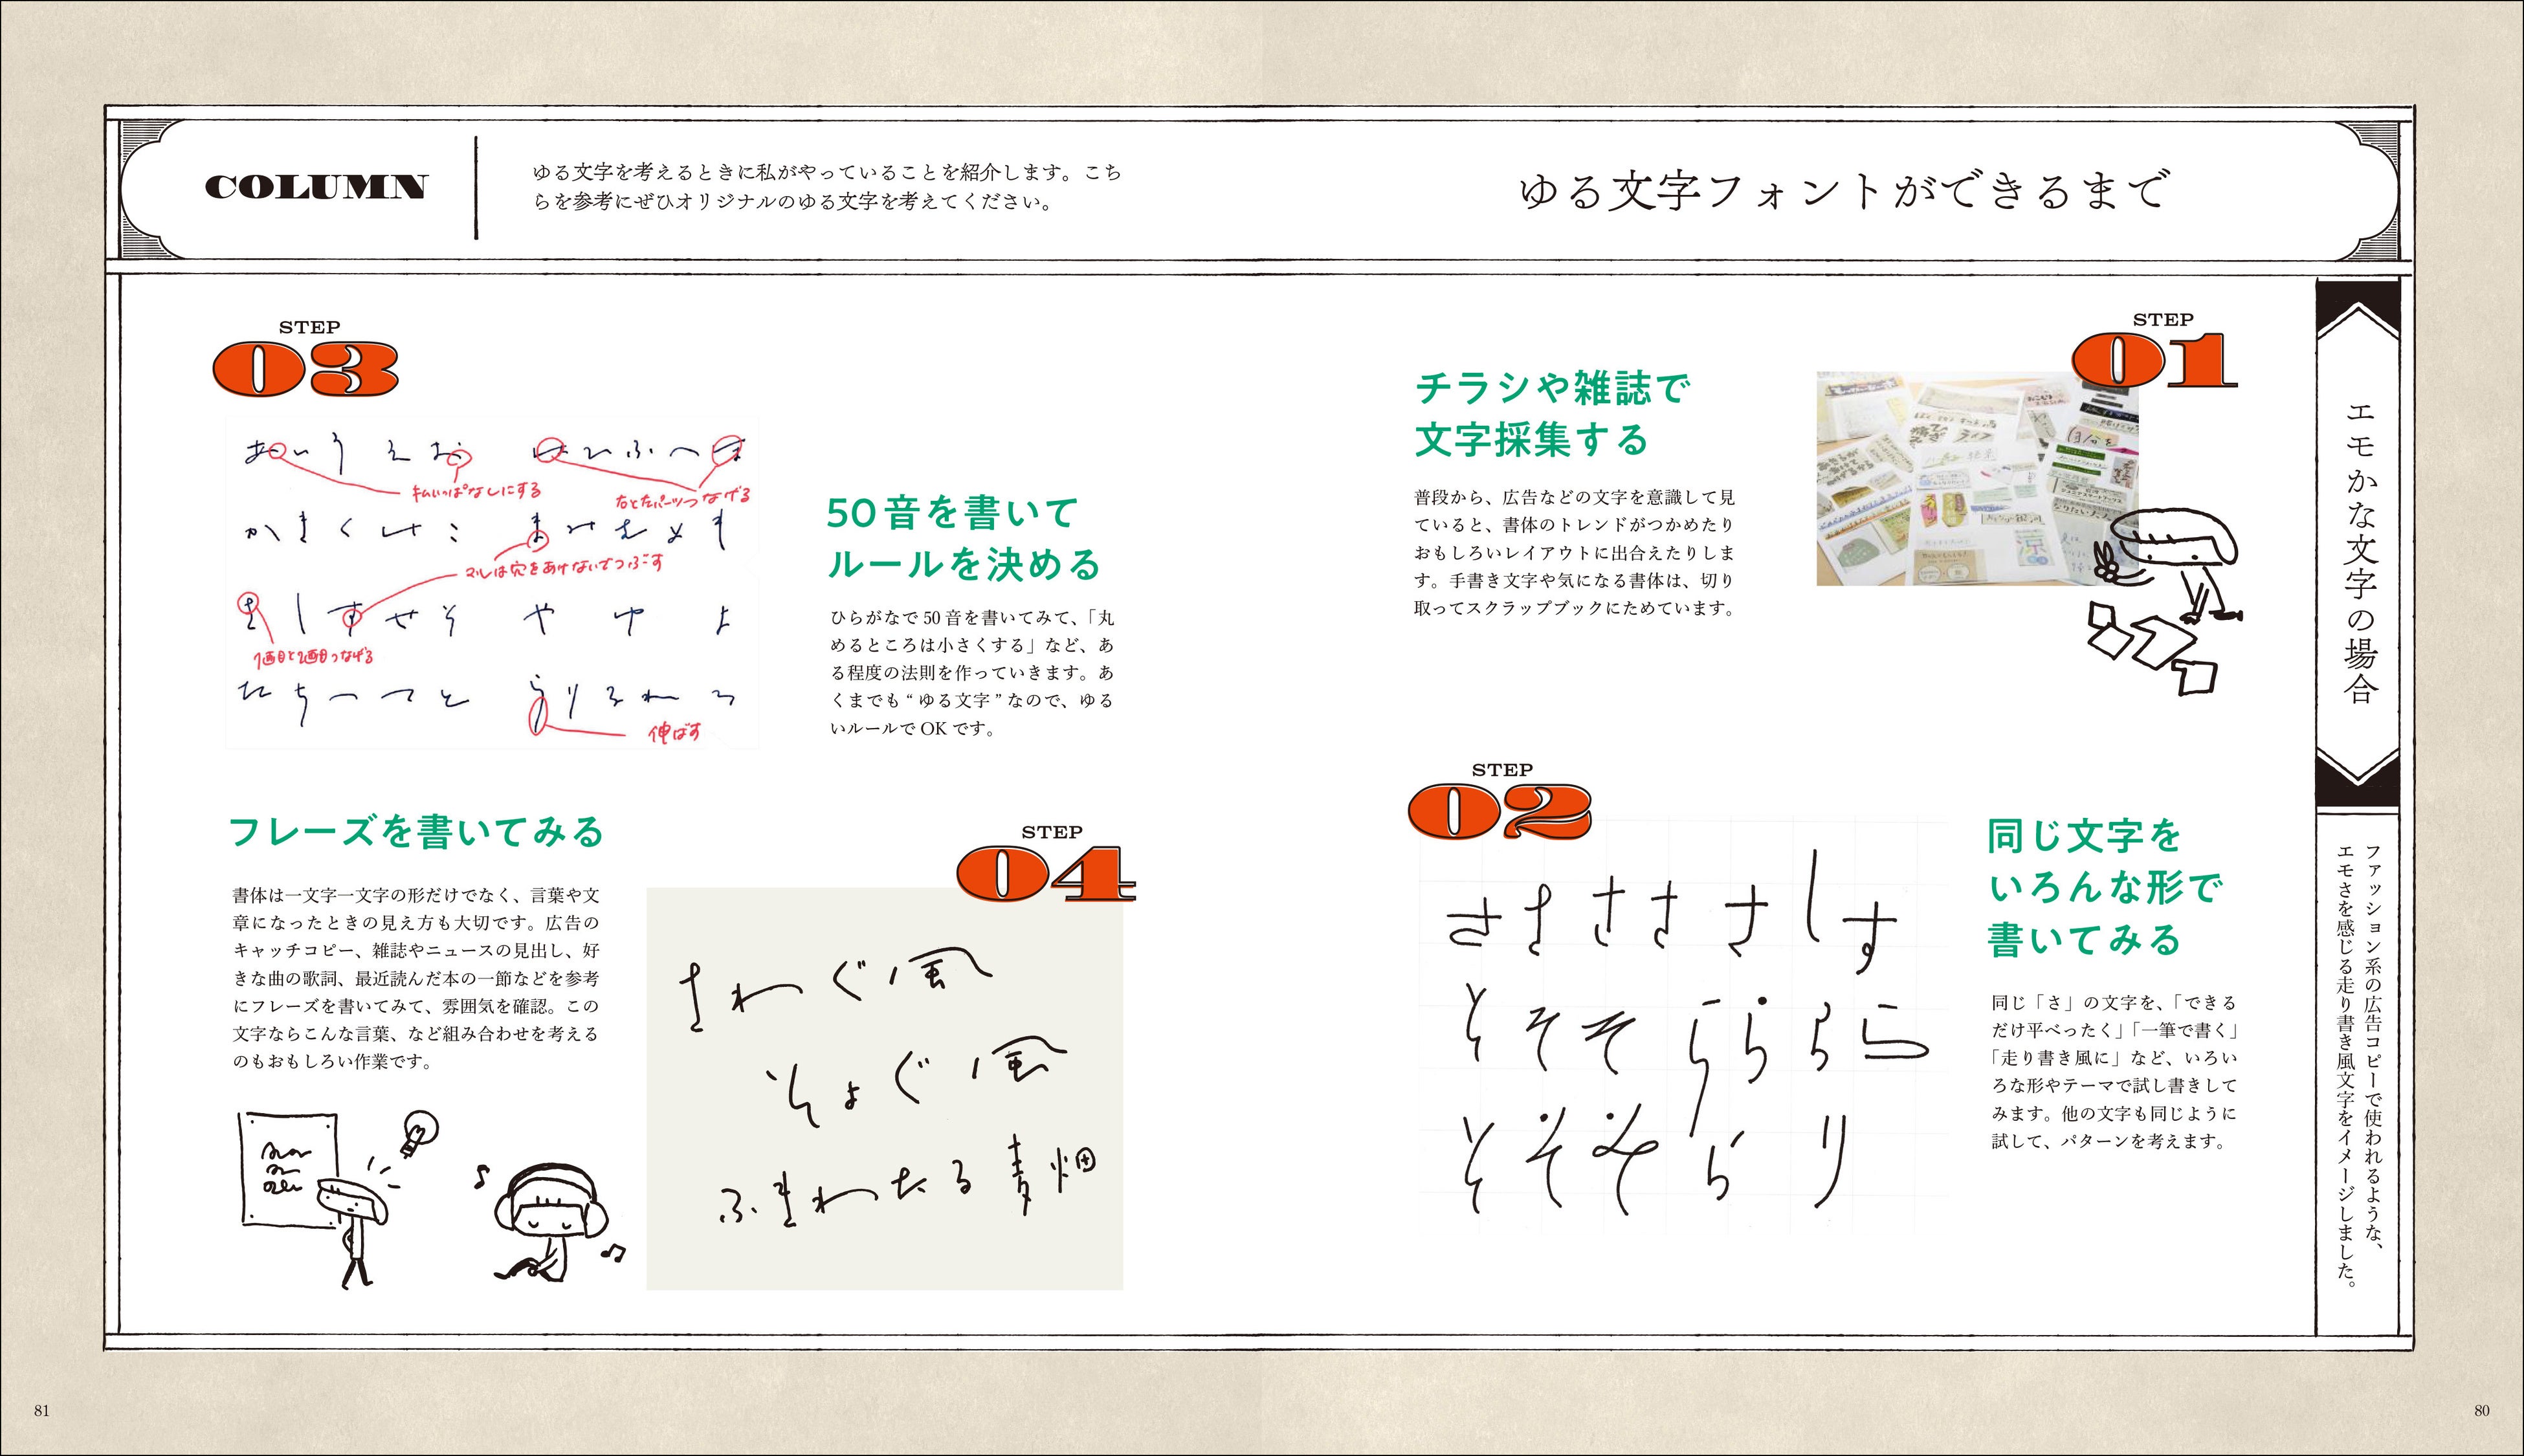 COLUMN
ゆる文字を考えるときに私がやっていることを紹介します。こち
らを参考にぜひオリジナルのゆる文字を考えてください。
ゆる文字フォントができるまで
エモかな文字の場合
ファッション系の広告コピーで使われるような、
エモさを感じる走り書き風文字をイメージしました。
STEP
01
チラシや雑誌で
文字採集する
普段から、広告などの文字を意識して見
ていると、書体のトレンドがつかめたり
おもしろいレイアウトに出合えたりしま
す。手書き文字や気になる書体は、切り
取ってスクラップブックにためています。
STEP
02
同じ文字を
いろんな形で
書いてみる
同じ「さ」の文字を、「できる
だけ平べったく」「一筆で書く」
「走り書き風に」など、いろい
ろな形やテーマで試し書きして
みます。他の文字も同じように
試して、パターンを考えます。
さささささしす
そそそらららら
そそそらり
STEP
03
50音を書いて
ルールを決める
ひらがなで50音を書いてみて、「丸
めるところは小さくする」など、あ
る程度の法則を作っていきます。あ
くまでも“ゆる文字”なので、ゆる
いルールでOKです。
あいうえお はひふへほ
払いっぱなしにする
右と左パーツつなげる
かきくけこ まみむめも
マルは穴をあけないでつぶす
さしすせそ や ゆ よ
1画目と2画目つなげる
たちつてと らりるれろ
伸ばす
STEP
04
フレーズを書いてみる
書体は一文字一文字の形だけでなく、言葉や文
章になったときの見え方も大切です。広告の
キャッチコピー、雑誌やニュースの見出し、好
きな曲の歌詞、最近読んだ本の一節などを参考
にフレーズを書いてみて、雰囲気を確認。この
文字ならこんな言葉、など組み合わせを考える
のもおもしろい作業です。
さわぐ風
そよぐ風
ふきわたる麦畑
81
80